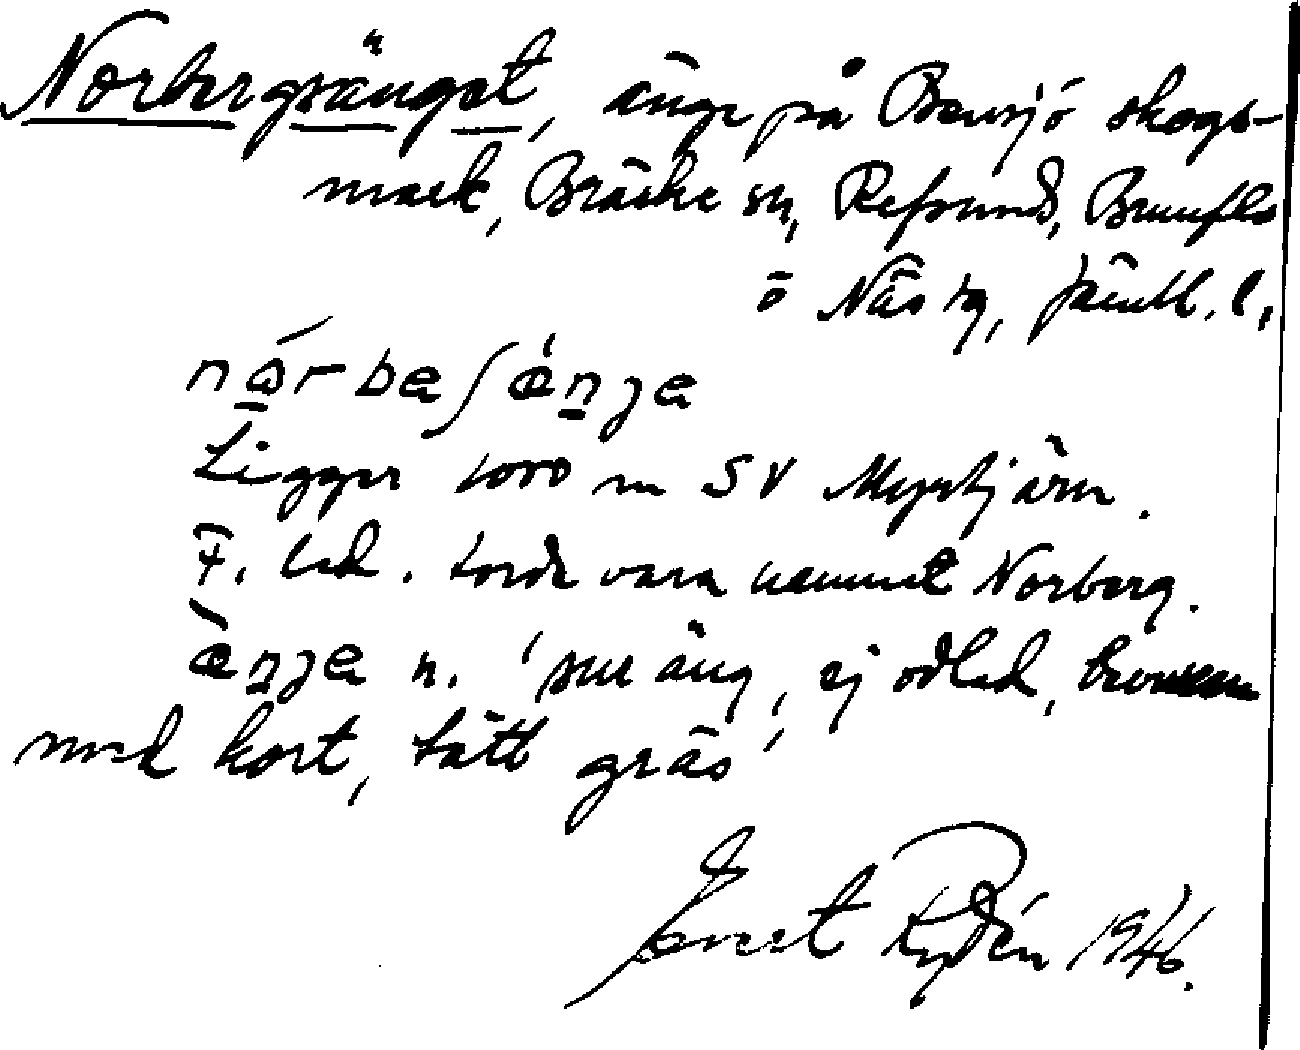 Norbergsänget, änge på Bensjö skogs-
mark, Bräcke sn, Refsunds, Brunflo
o Näs tg, Jämtl. l.
nǻrbeʃǽnje
Ligger 1000 m SV Myrtjärn.
F. led. torde vara namnet Norberg.
ænje n. 'sur äng, ej odlad, bevuxen
med kort, tätt gräs'
Ernst Rydén 1946.